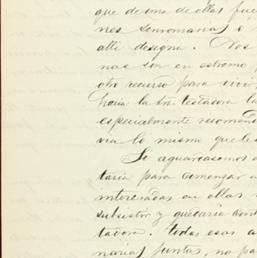 que de una de ellas fue
nes semanas s
alli designa. Los
nas son en estremo,
otro recurso para vivir
hacia la Sra. testadora la
especialmente recomend
via lo mismo que les
Si aguardasemos a
taria para comenzar a
interesadas en ellas
subsistir y quedaria bur
tadora. todas esas a
norias juntas, no pa